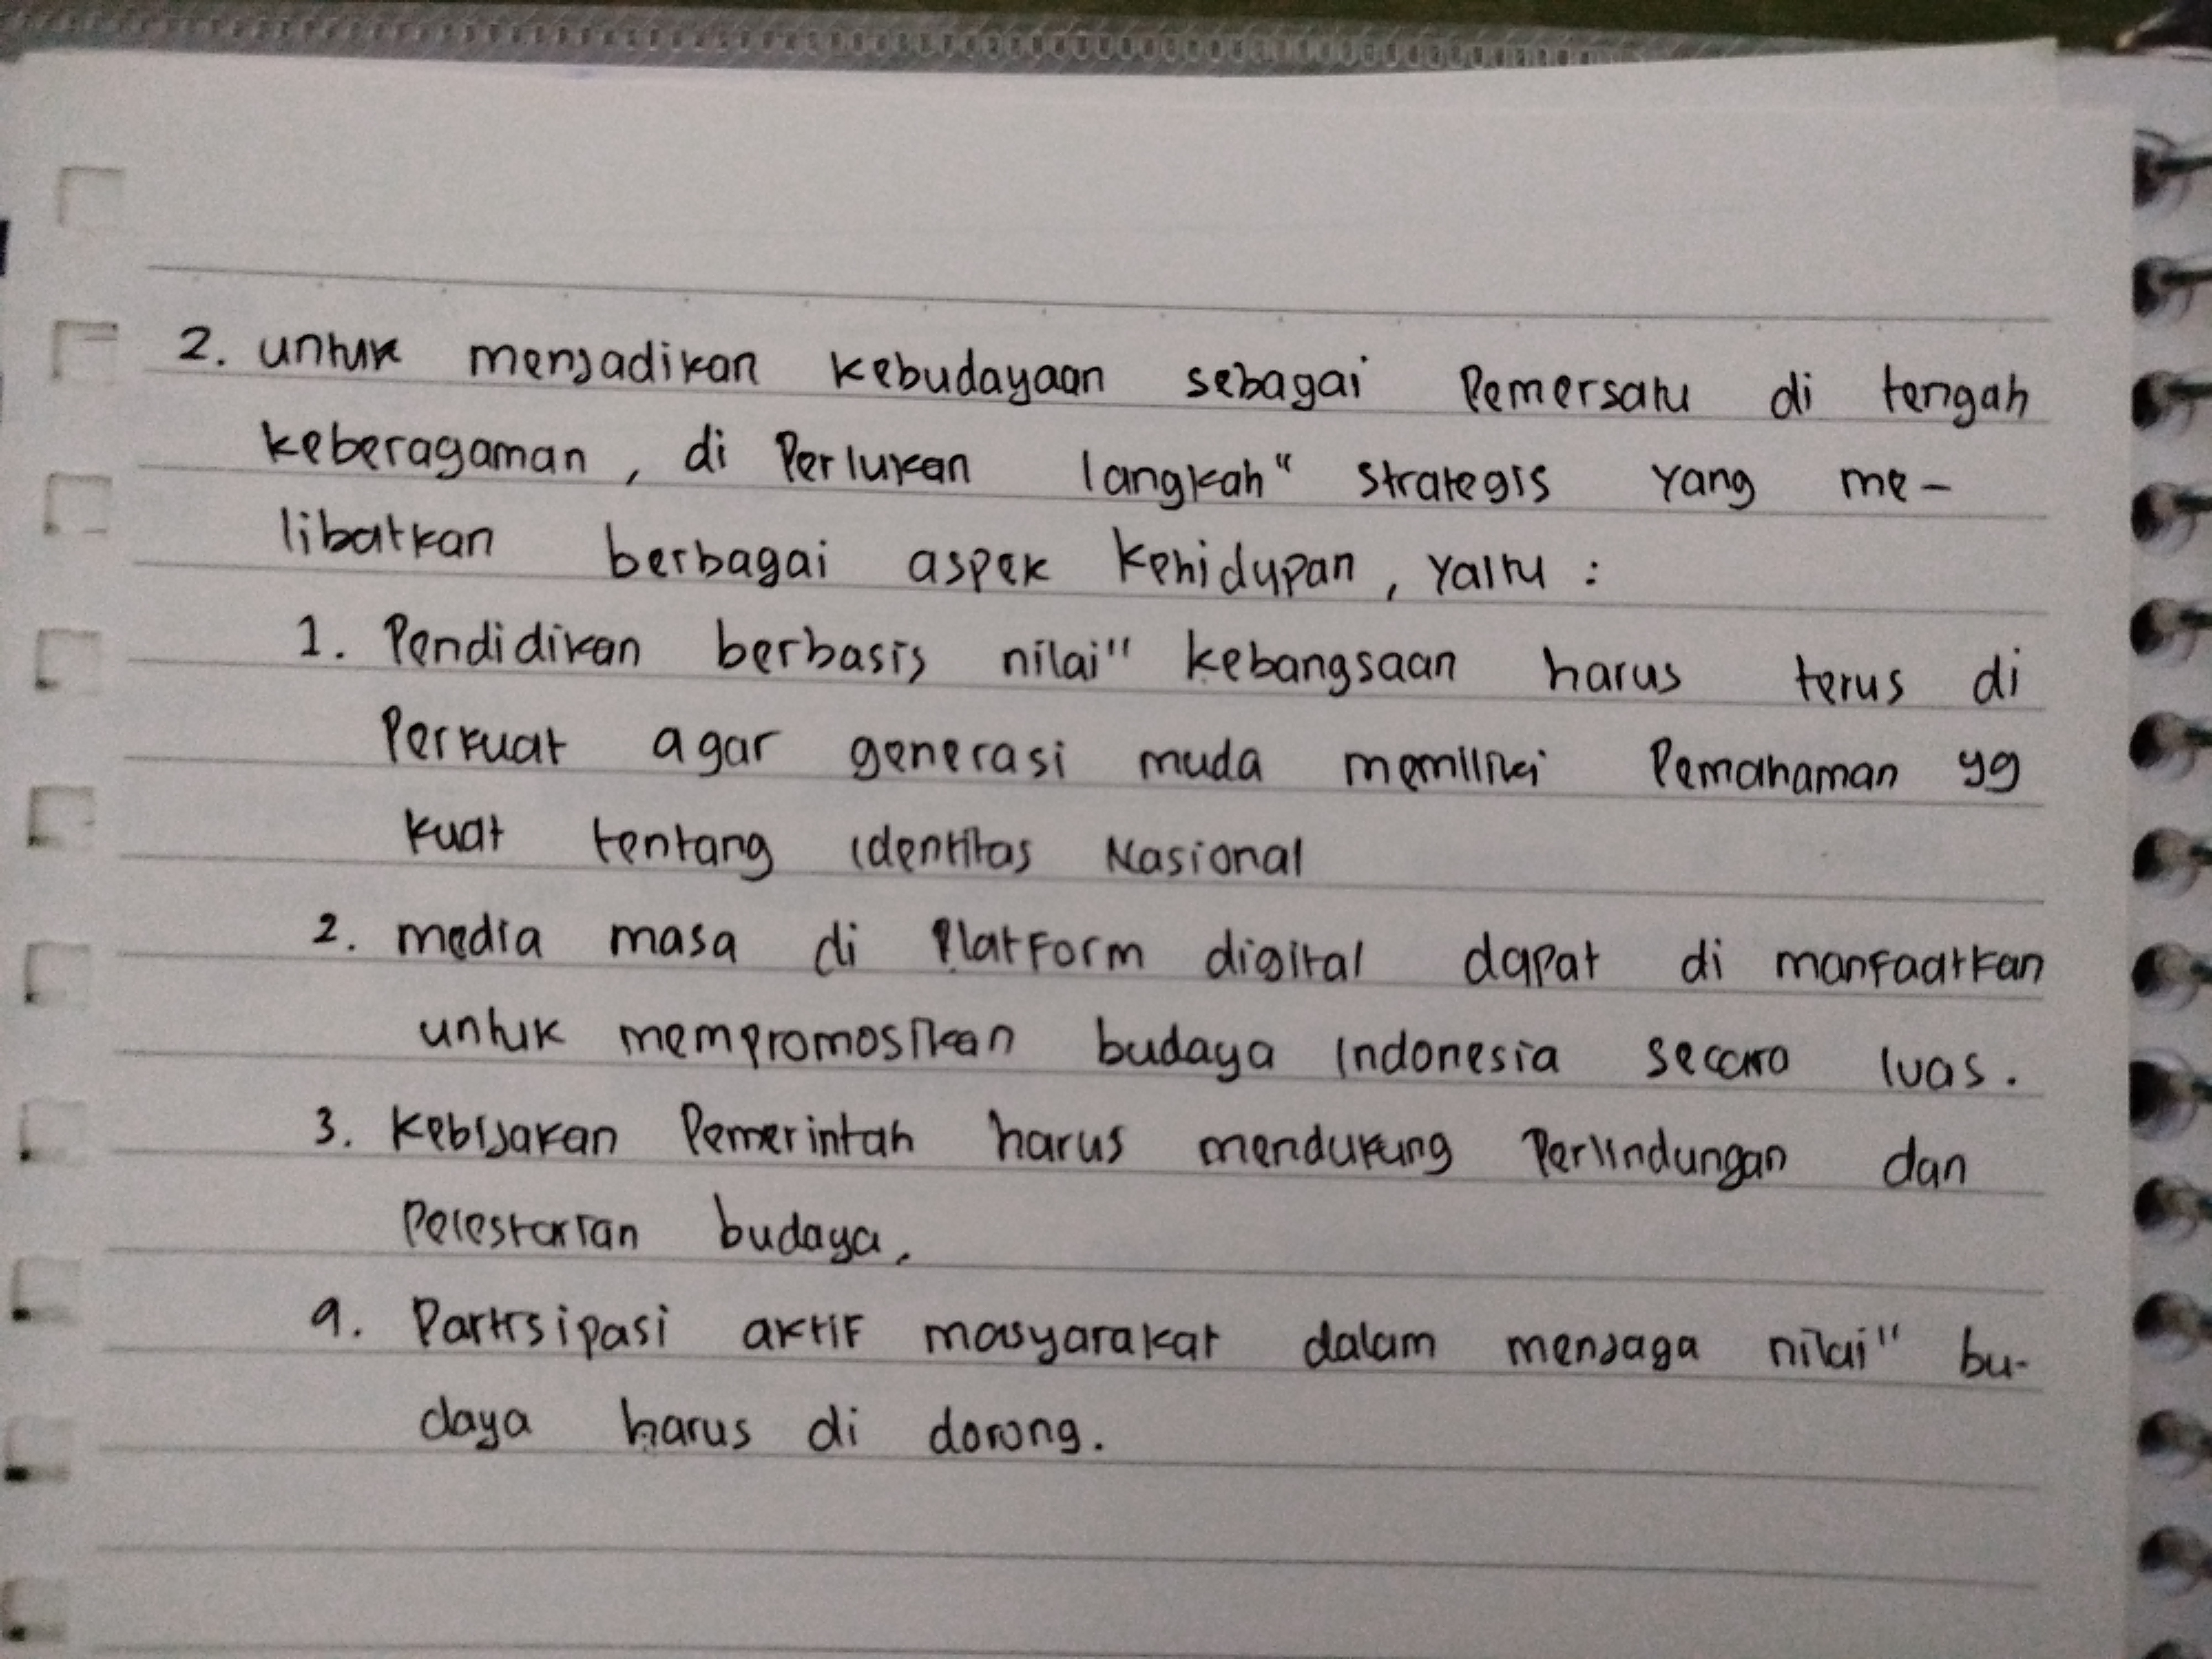 2. untuk menjadikan kebudayaan sebagai Pemersatu di tengah
keberagaman, di Perlukan langkah" strategis yang me-
libatkan berbagai aspek kehidupan, yaitu :
1. Pendidikan berbasis nilai" kebangsaan harus terus di
Perkuat agar generasi muda memiliki Pemahaman yg
kuat tentang identitas Nasional
2. media masa di Platform digital dapat di manfaatkan
untuk mempromosikan budaya Indonesia secara luas.
3. Kebijakan Pemerintah harus mendukung Perlindungan dan
Pelestarian budaya.
4. Partisipasi aktif masyarakat dalam menjaga nilai" bu-
daya harus di dorong.